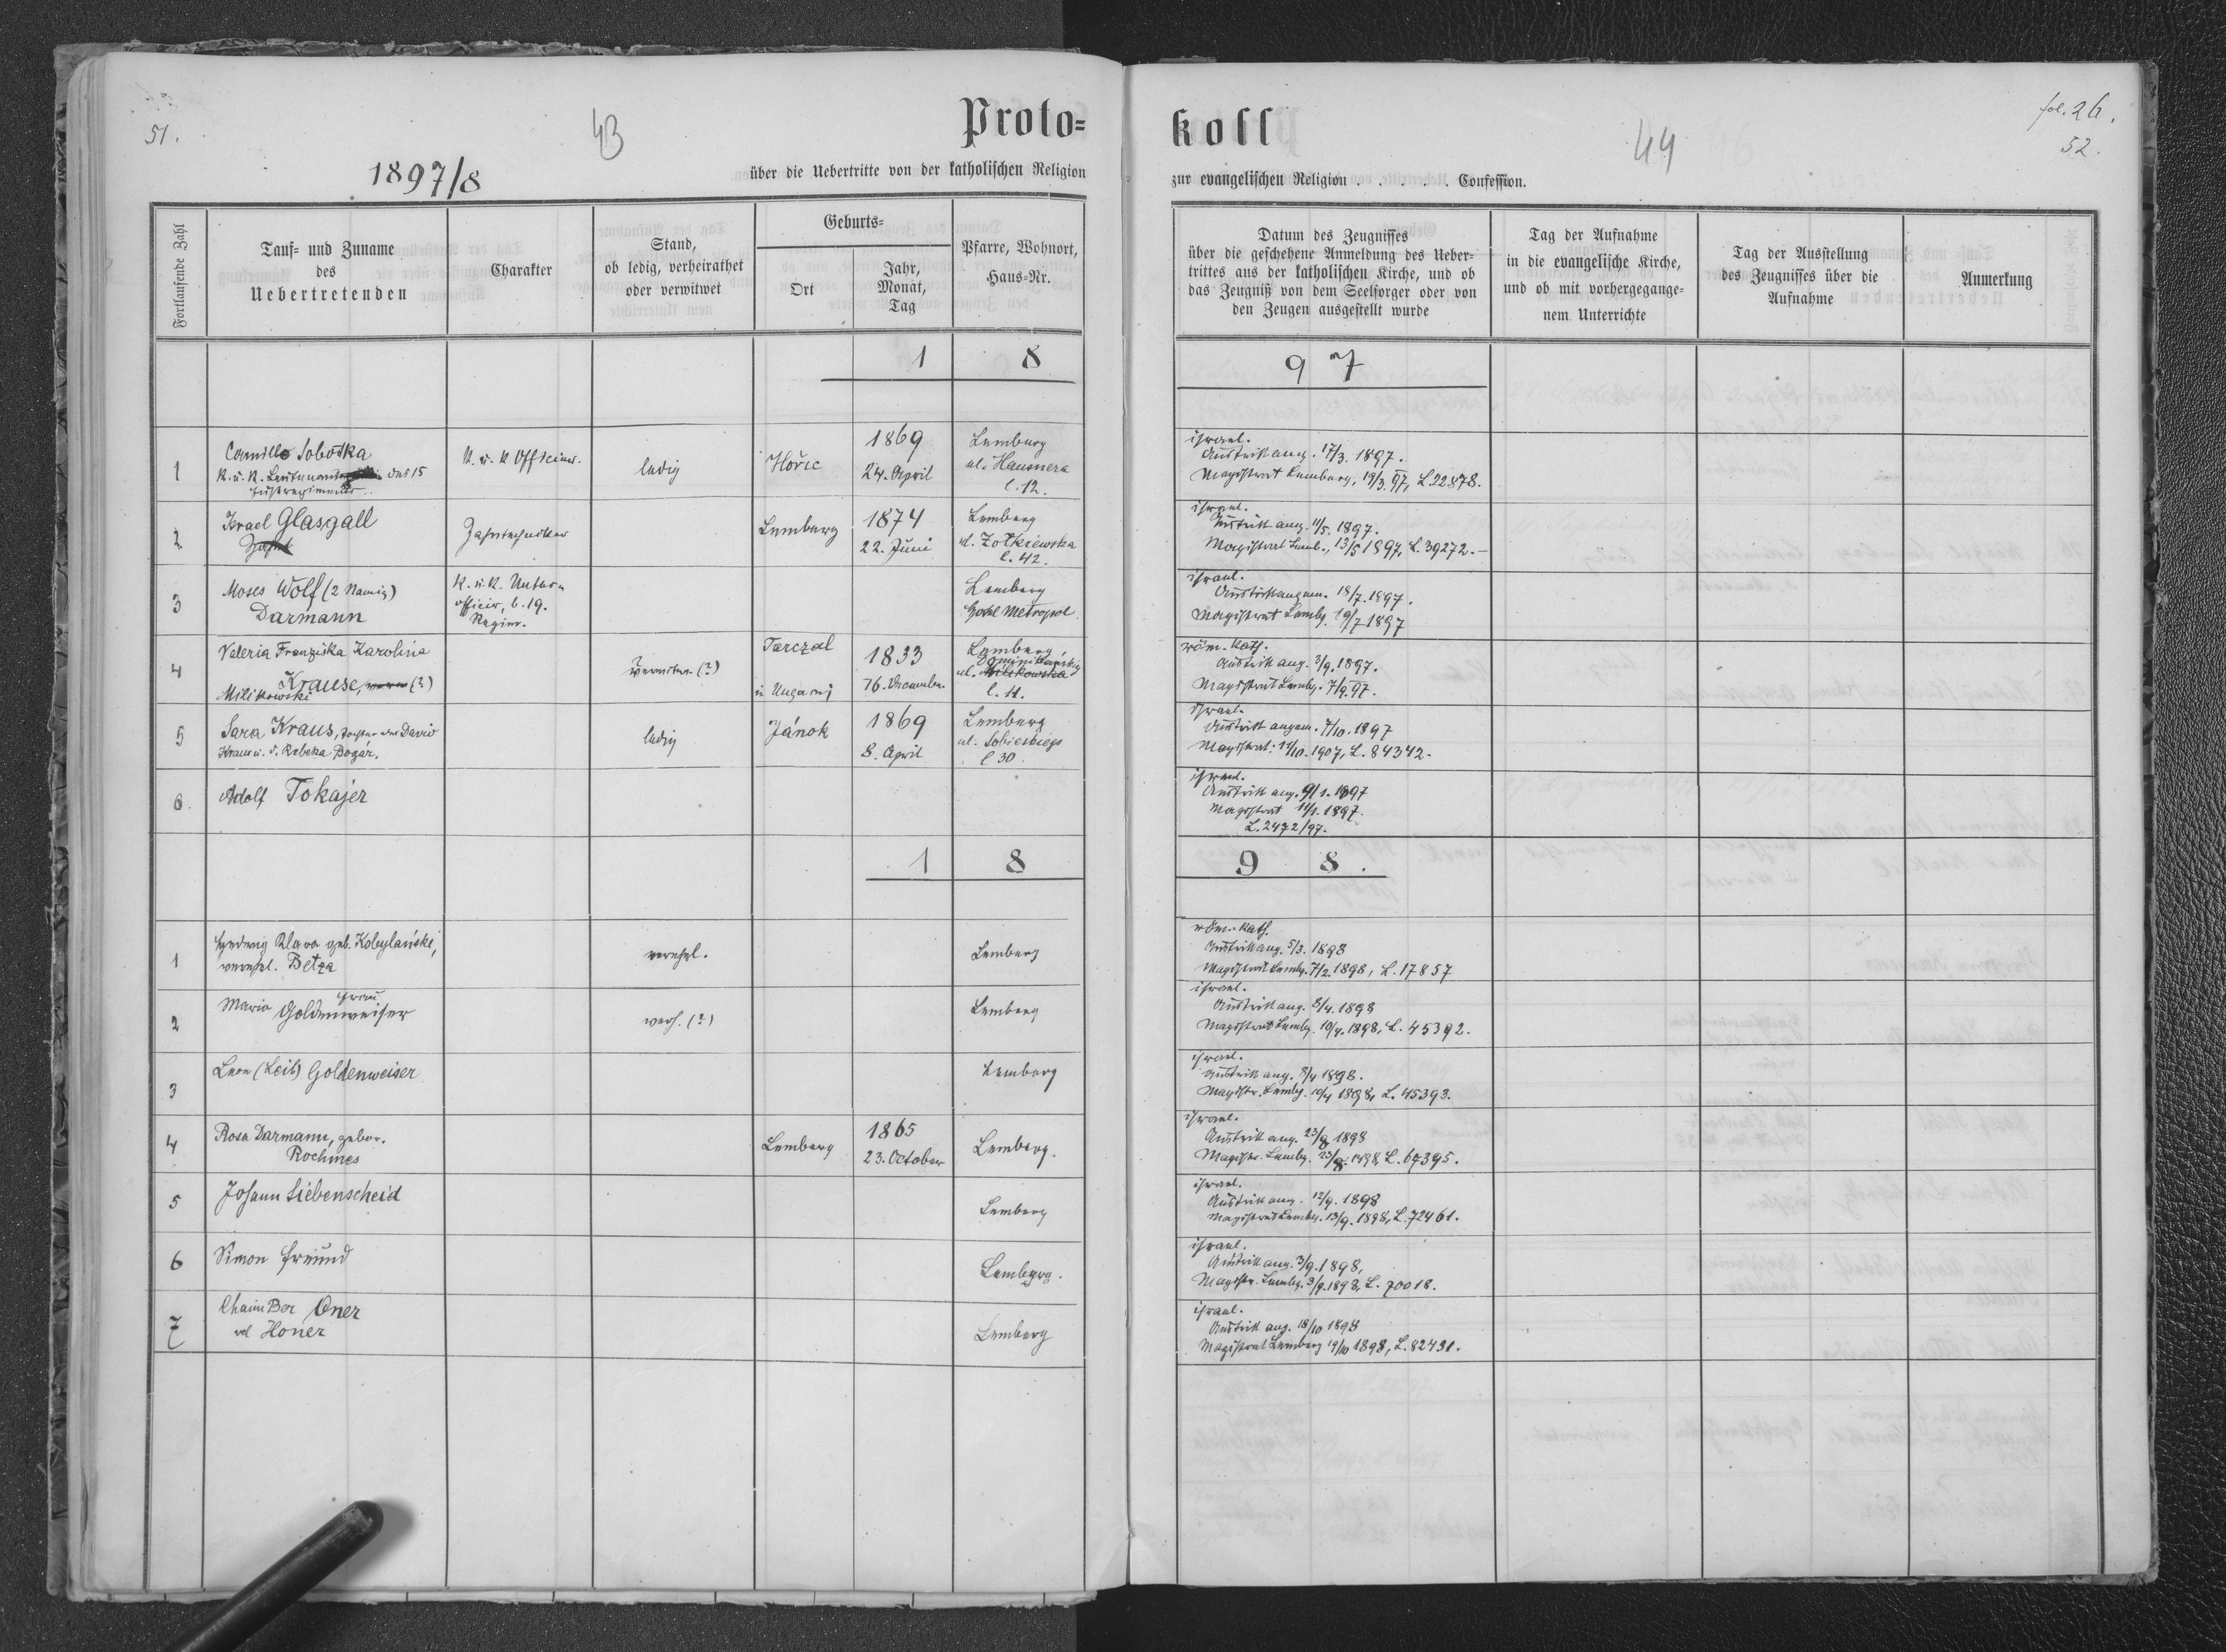 51.
43
Proto=
1897/8
über die Uebertritte von der katholischen Religion
koll
44
fol. 26.
52.
zur evangelischen Religion . . . . . Confession.
Fortlaufende Zahl
Tauf= und Zuname
des
Uebertretenden
Charakter
Stand,
ob ledig, verheirathet
oder verwitwet
Geburts=
Ort
Jahr,
Monat,
Tag
Pfarre, Wohnort,
Haus=Nr.
Datum des Zeugnisses
über die geschehene Anmeldung des Ueber=
trittes aus der katholischen Kirche, und ob
das Zeugniß von dem Seelsorger oder von
den Zeugen ausgestellt wurde
Tag der Aufnahme
in die evangelische Kirche,
und ob mit vorhergegange=
nem Unterrichte
Tag der Ausstellung
des Zeugnisses über die
Aufnahme
Anmerkung
1 8 9 7
1
Camillo Sobotka
K. u. K. Leutenant des 15
K. u. K Officier.
ledig
Hořic
1869
24. April
Lemberg
ul. Hausnera
l. 12.
israel.
Austritt ang. 17/3. 1897.
Magistrat Lemberg, 19/3. 97, L 22878.
2
Israel Glasgall
Zahntechniker
Lemberg
1874
22. Juni
Lemberg
ul. Zołkiewska
l. 42.
israel.
Austritt ang. 11/5. 1897.
Magistrat Lemb., 13/5 1897, L. 39272.—
3
Moses Wolf (2 Namig)
Darmann
K. u. K. Unter=
officir, b. 19.
Regim.
Lemberg
Hotel Metropol
israel.
Austritt angem. 18/7. 1897.
Magistrat Lembg. 19/7 1897
4
Valeria Franziska Karolina
Krause, (?)
Milikowski
verwitw. (?)
Tarczal
in Ungarn
1833
16. December.
Lemberg,
ul. Dominikańska
l. 11.
röm.-kath.
Austritt ang. 3/9. 1897.
Magistrat Lembg. 7/9. 97.
5
Sara Kraus, Tochter des David
Kraus u. d. Rebeka Bogár.
ledig
Jánok
1869
8. April
Lemberg
ul. Sobieskiego
l 30.
israel.
Austritt angem. 7/10. 1897
Magistrat: 11/10. 1907, L. 84342.
6.
Adolf Tokajer
israel.
Austritt ang. 9/1. 1897
Magistrat 11/1. 1897.
L. 2472/97.
1 8 9 8.
1
Hedwig Klara geb. Kobylański,
verehel. Betza
verehel.
Lemberg
röm.-kath.
Austritt ang. 5/3. 1898
Magistrat Lembg. 7/2. 1898, L. 17857
2
Maria Frau Goldenweiser
verh. (?)
Lemberg
israel.
Austritt ang. 8/4. 1898
Magistrat Lembg. 10/4. 1898, L. 45392.
3
Leon (Leib) Goldenweiser
Lemberg
israel.
Austritt ang. 8/4 1898.
Magistr. Lembg. 10/4 1898, L. 45393.
4
Rosa Darmann, gebor.
Rochmes
Lemberg
1865
23. October
Lemberg.
israel.
Austritt ang. 23/8 1898
Magistr. Lembg. 23/8. 1898, L. 67395.
5
Johann Liebenscheid
Lemberg
israel.
Austritt ang. 12/9. 1898
Magistrat Lembg. 13/9. 1898, L. 72461.
6
Simon Freund
Lemberg.
israel.
Austritt ang. 3/9. 1898,
Magistr. Lembg. 3/9. 1898, L. 70018.
7
Chaim Ber Oner
vel Honer
Lemberg
israel.
Austritt ang. 18/10 1898
Magistrat Lemberg 19/10 1898, L. 82431.